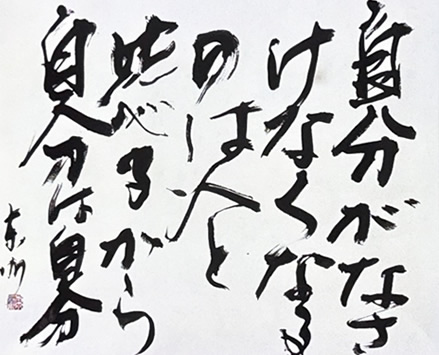 自分がなさ
けなくなる
のは人と
比べるから
自分は自分